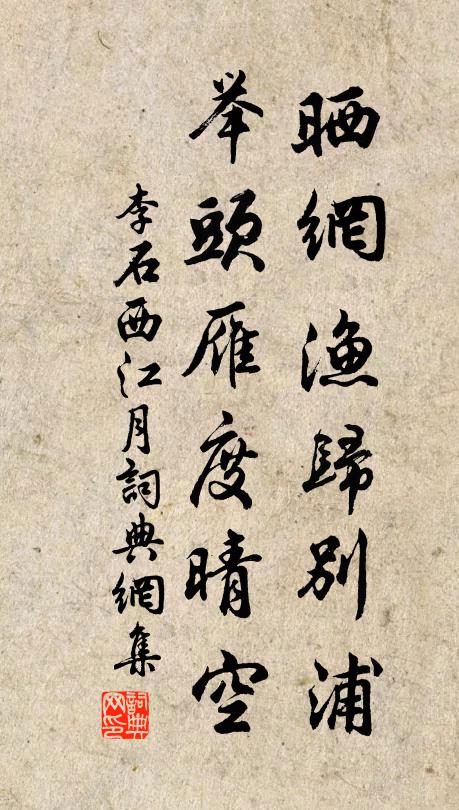 晒網漁歸別浦
举頭雁度晴空
李石西江月詞典網集
詞典网印